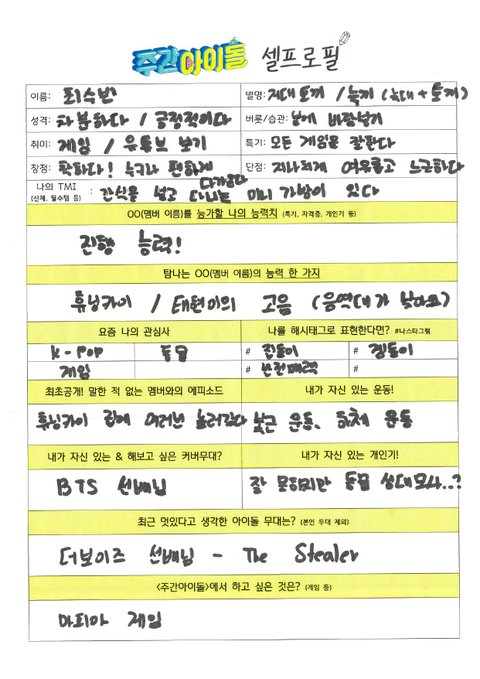 주간아이돌 셀프로필
이름: 최수빈 별명: 지대토끼 / 늑끼 (늑대 + 토끼)
성격: 차분하다 / 긍정적이다 버릇/습관: 볼에 바람넣기
취미: 게임 / 유튜브 보기 특기: 모든 게임을 잘한다
장점: 착하다! 누구나 편하게 다가온다 단점: 지나치게 여유롭고 느긋하다
나의 TMI (신체, 필수템 등) : 간식을 넣고 다니는 미니 가방이 있다
OO(멤버 이름)를 능가할 나의 능력치 (특기, 자격증, 개인기 등)
진행 능력!
탐나는 OO(멤버 이름)의 능력 한 가지
휴닝카이 / 태현이의 고음 (음역대가 낮아요)
요즘 나의 관심사 나를 해시태그로 표현한다면? #나스타그램
K-POP 동물 # 집돌이 # 겜돌이
게임 # 반전매력 #
최초공개! 말한 적 없는 멤버와의 에피소드 내가 자신 있는 운동!
휴닝카이 집에 여러번 놀러갔다 복근 운동, 하체 운동
내가 자신 있는 & 해보고 싶은 커버무대? 내가 자신 있는 개인기!
BTS 선배님 잘 못하지만 동물 성대모사..?
최근 멋있다고 생각한 아이돌 무대는? (본인 무대 제외)
더보이즈 선배님 - The Stealer
<주간아이돌>에서 하고 싶은 것은? (게임 등)
마피아 게임